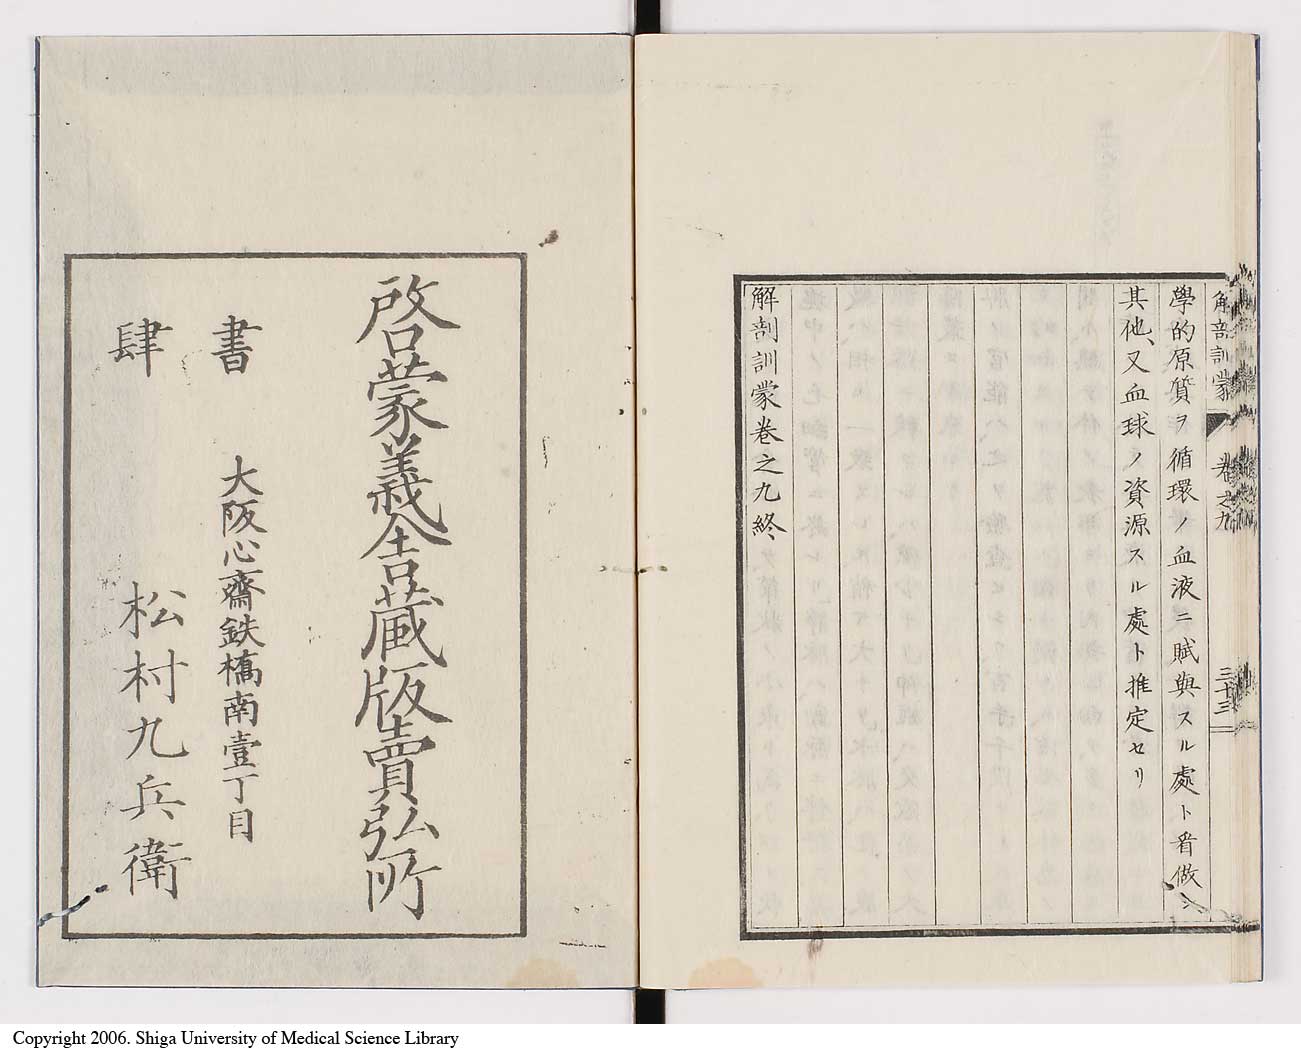 解剖訓蒙 卷之九 三十三
學的原質ヲ循環ノ血液ニ賦與スル處ト看做シ
其他、又血球ノ資源スル處ト推定セリ
解剖訓蒙卷之九終
啓蒙義舎蔵版賣弘所
書 大阪心齋鉄橋南壹丁目
肆 松村九兵衛
Copyright 2006. Shiga University of Medical Science Library